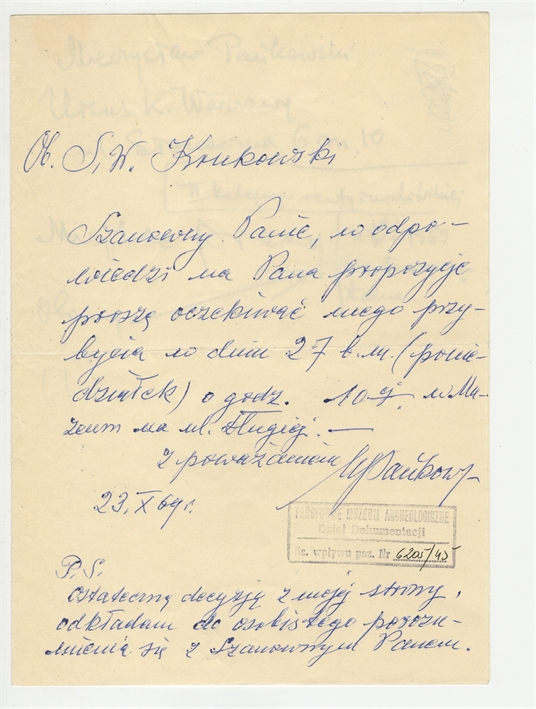 Ob. S.W. Konkowski
Szanowny Panie, w odpo-
wiedzi na Pana propozycję
proszę oczekiwać mego przy-
bycia w dniu 27 b.m. (ponie-
działek) o godz. 10ej. w Mu-
zeum na ul. Długiej. —
z poważaniem MPańkows
23.X 69 r.
PAŃSTWOWE MUZEUM ARCHEOLOGICZNE
Dział Dokumentacji
Ks. wpływu poz. Nr 6205/45
P.S.
Ostateczną decyzję z mojej strony,
odkładam do osobistego porozu-
mienia się z Szanownym Panem.